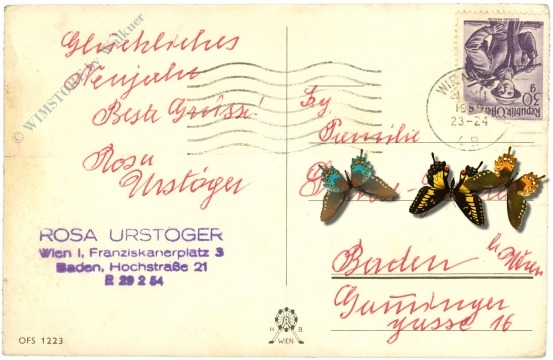 © WIMSTORE by Falkner
Glückliches
Neujahr
Beste Grüsse!
Rosa
Urstöger
ROSA URSTOGER
Wien I, Franziskanerplatz 3
Baden, Hochstraße 21
R 29 2 54
OFS 1223
H B
WIEN
30 g
Republik Österreich
WIEN
1959
23-24
Familie
Baden b. Wien
gasse 16